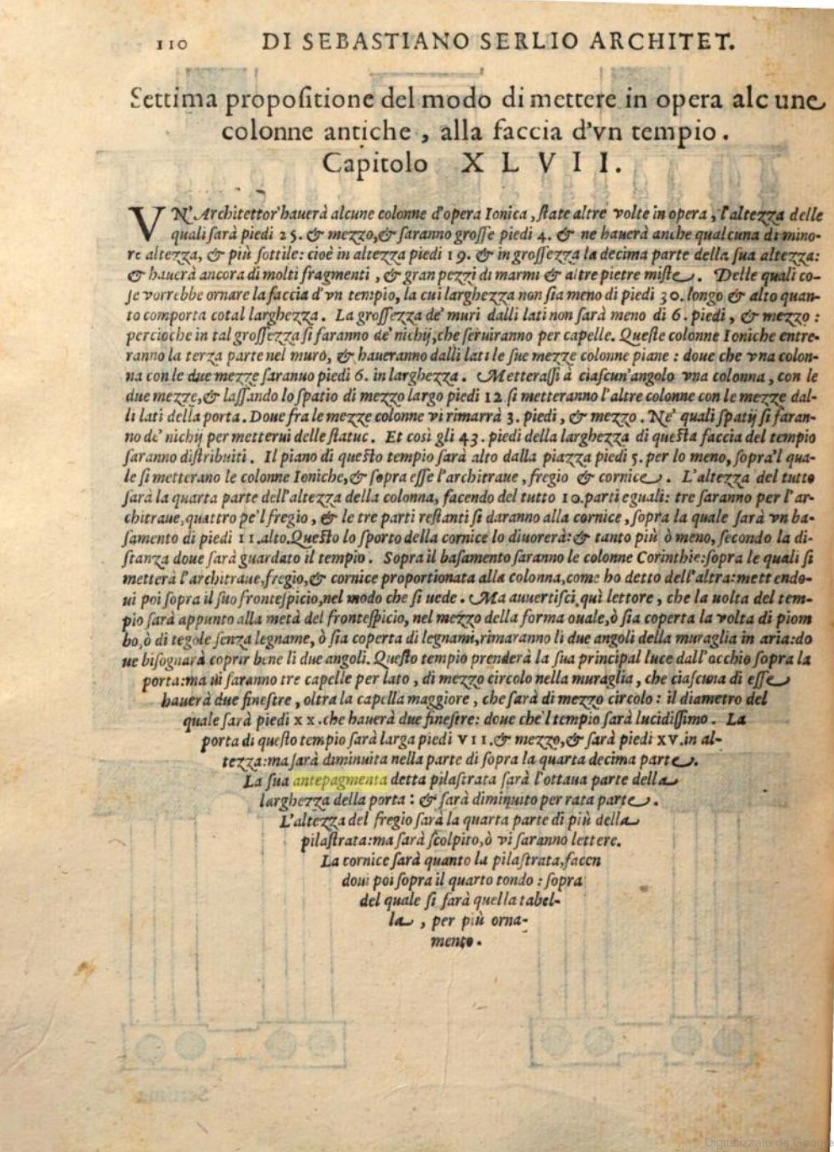 110 DI SEBASTIANO SERLIO ARCHITET.
Settima propoſitione del modo di mettere in opera alcune
colonne antiche, alla faccia d'vn tempio.
Capitolo XLVII.
VN' Architettor' hauerà alcune colonne d'opera Ionica, ſtate altre volte in opera, l'altezza delle
quali ſarà piedi 25. & mezzo, & ſaranno groſſe piedi 4. & ne hauerà anche qualcuna di mino-
re altezza, & più ſottile: cioè in altezza piedi 19. & in groſſezza la decima parte della ſua altezza:
& hauerà ancora di molti fragmenti, & gran pezzi di marmi & altre pietre miſte. Delle quali co-
ſe vorrebbe ornare la faccia d'vn tempio, la cui larghezza non ſia meno di piedi 30. longo & alto quan-
to comporta cotal larghezza. La groſſezza de' muri dalli lati non ſarà meno di 6. piedi, & mezzo:
percioche in tal groſſezza ſi faranno de' nichij, che ſeruiranno per capelle. Queſte colonne Ioniche entre-
ranno la terza parte nel muro, & haueranno dalli lati le ſue mezze colonne piane: doue che vna colon-
na con le due mezze ſaranuo piedi 6. in larghezza. Metteraſſi à ciaſcun'angolo vna colonna, con le
due mezze, & laſſando lo ſpatio di mezzo largo piedi 12 ſi metteranno l'altre colonne con le mezze dal-
li lati della porta. Doue fra le mezze colonne vi rimarrà 3. piedi, & mezzo. Ne' quali ſpatij ſi faran-
no de' nichij per metterui delle ſtatue. Et così gli 43. piedi della larghezza di queſta faccia del tempio
ſaranno diſtribuiti. Il piano di queſto tempio ſarà alto dalla piazza piedi 5. per lo meno, ſopra'l qua-
le ſi metterano le colonne Ioniche, & ſopra eſſe l'architraue, fregio & cornice. L'altezza del tutto
ſarà la quarta parte dell'altezza della colonna, facendo del tutto 10. parti eguali: tre ſaranno per l'ar-
chitraue, quattro pe'l fregio, & le tre parti reſtanti ſi daranno alla cornice, ſopra la quale ſarà vn ba-
ſamento di piedi 11. alto. Queſto lo ſporto della cornice lo diuorerà: & tanto più ò meno, ſecondo la di-
ſtanza doue ſarà guardato il tempio. Sopra il baſamento ſaranno le colonne Corinthie: ſopra le quali ſi
metterà l'architraue, fregio, & cornice proportionata alla colonna, come ho detto dell'altra: mettendo-
ui poi ſopra il ſuo fronteſpicio, nel modo che ſi uede. Ma auuertiſci, quì lettore, che la uolta del tem-
pio ſarà appunto alla metà del fronteſpicio, nel mezzo della forma ouale, ò ſia coperta la volta di piom
bo, ò di tegole ſenza legname, ò ſia coperta di legnami, rimaranno li due angoli della muraglia in aria: do
ue biſognarà coprir bene li due angoli. Queſto tempio prenderà la ſua principal luce dall'occhio ſopra la
porta: ma ui ſaranno tre capelle per lato, di mezzo circolo nella muraglia, che ciaſcuna di eſſe
hauerà due fineſtre, oltra la capella maggiore, che ſarà di mezzo circolo: il diametro del
quale ſarà piedi xx. che hauerà due fineſtre: doue che'l tempio ſarà lucidiſſimo. La
porta di queſto tempio ſarà larga piedi VII. & mezzo, & ſarà piedi XV. in al-
tezza: ma ſarà diminuita nella parte di ſopra la quarta decima parte.
La ſua antepagmenta detta pilaſtrata ſarà l'ottaua parte della
larghezza della porta: & ſarà diminuito per rata parte.
L'altezza del fregio ſarà la quarta parte di più della
pilaſtrata: ma ſarà ſcolpito, ò vi ſaranno lettere.
La cornice ſarà quanto la pilaſtrata, facen
doui poi ſopra il quarto tondo: ſopra
del quale ſi farà quella tabel-
la, per più orna-
mento.
Digitalizzato da Google